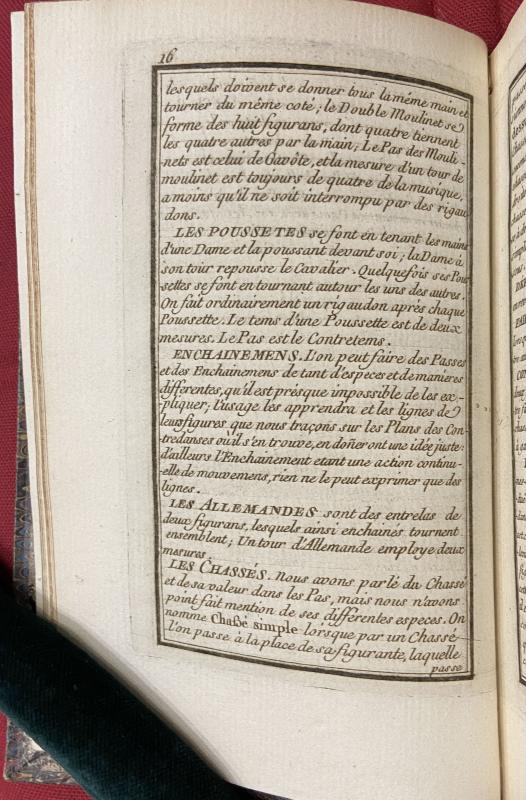 16
lesquels doivent se donner tous la même main et
tourner du même coté; le Double Moulinet se
forme des huit figurans, dont quatre tiennent
les quatre autres par la main; Le Pas des Mouli-
nets est celui de Gavôte, et la mesure d'un tour de
moulinet est toujours de quatre de la musique,
a moins qu'il ne soit interrompu par des rigau
dons.
LES POUSSETES se font en tenant les mains
d'une Dame et la poussant devant soi; la Dame à
son tour repousse le Cavalier. Quelquefois ses Pous
settes se font en tournant autour les uns des autres.
On fait ordinairement un rigaudon aprés chaque
Poussette. Le tems d'une Poussette est de deux
mesures. Le Pas est le Contretems.
ENCHAINEMENS. L'on peut faire des Passes
et des Enchainemens de tant d'especes et de manieres
differentes, qu'il est présque impossible de les ex-
-pliquer; l'usage les apprendra et les lignes de
leurs figures que nous traçons sur les Plans des Con
tredanses où il s'en trouve, en doñeront une idée juste:
d'ailleurs l'Enchainement etant une action continu-
-elle de mouvemens, rien ne le peut exprimer que des
lignes.
LES ALLEMANDES sont des entrelas de
deux figurans, lesquels ainsi enchainés tournent
ensemblent; Un tour d'Allemande employe deux
mesures.
LES CHASSÉS. Nous avons parlé du Chassé
et de sa valeur dans les Pas, mais nous n'avons
point fait mention de ses differentes especes. On
nomme Chaßé simple lorsque par un Chassé
l'on passe à la place de sa figurante, laquelle
passe